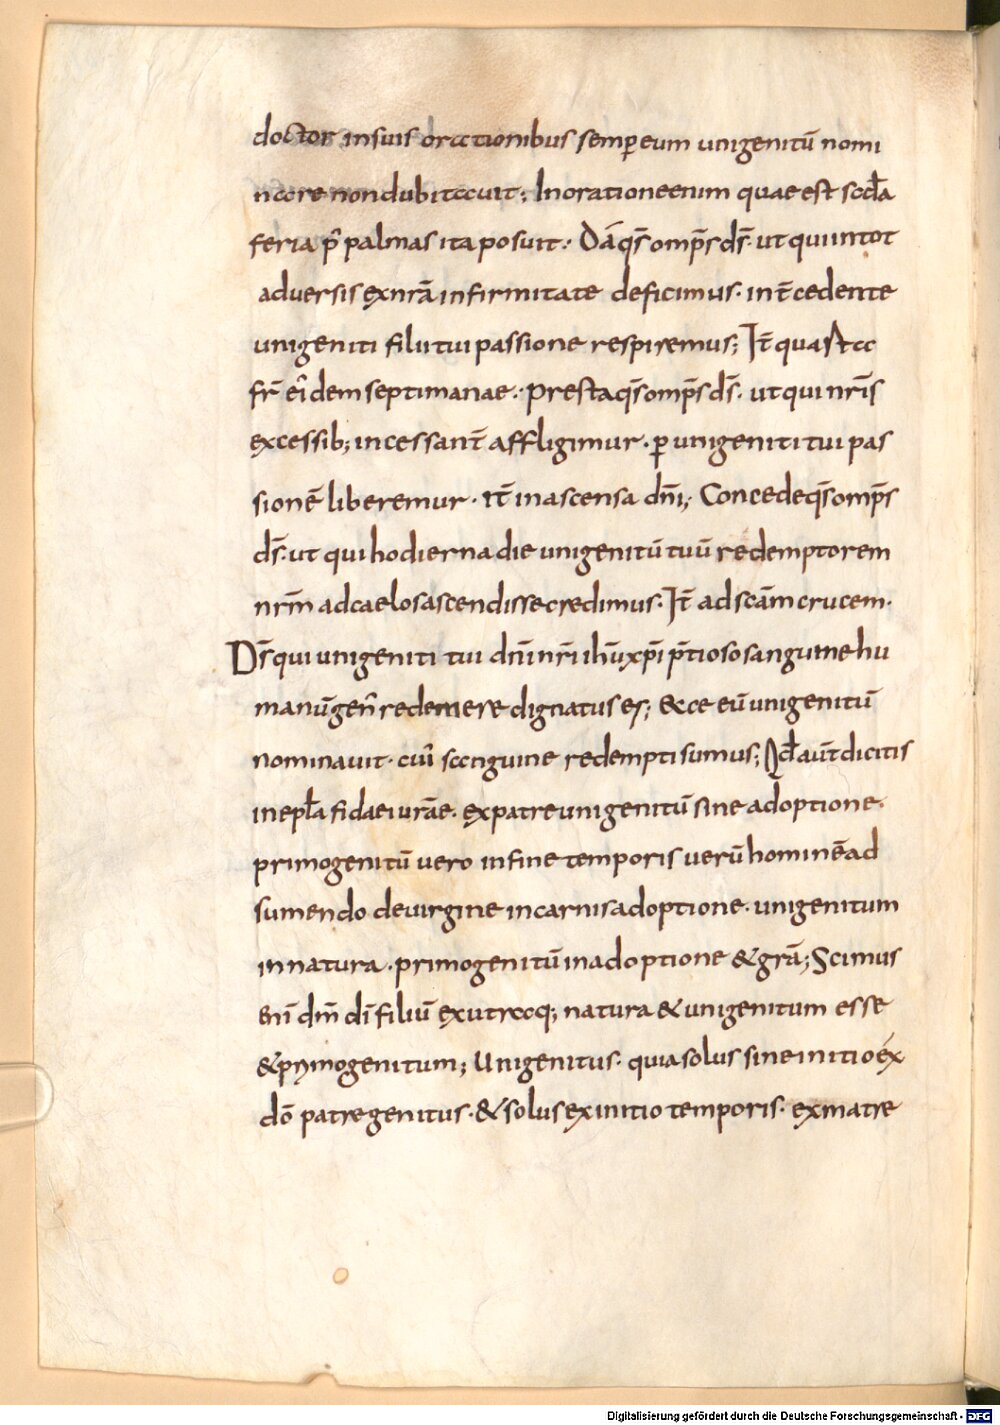 doctor insuis orationibus semp̲eum unigenitū nomi
nare nondubitauit; Inorationeenim quae est scd̄a
feria p̄ palmas ita posuit: Dāqs̄ omp̄s ds̄. ut quiintot
adversis exnrā infirmitate deficimus. int̄cedente
unigeniti filiitui passione respiremus; It̄ quarta
fr̄ eidem septimanae: Prestaqs̄omp̄s ds̄. ut qui nrīs
excessib; incessant̄ affligimur. p̲ unigeniti tui pas
sionē liberemur. It̄ in ascensa dn̄i; Concedeqs̄omp̄s
ds̄. ut qui hodierna die unigenitū tuū redemptorem
nrm̄ adcaelos ascendisse credimus. It̄ ad scām crucem.
Ds̄ qui unigeniti tui dn̄i nrī ih̄uxp̄i p̄tioso sanguine hu
manūgen̄ redemere dignatus es; ecce eū unigenitū
nominavit. cui sanguine redempti sumus; Qd̄ aūt dicitis
inepl̄a fidaei urāe. expatre unigenitū sine adoptione.
primogenitū vero infine temporis verū hominē ad
sumendo devirgine incarnis adoptione. unigenitum
innatura. primogenitū inadoptione & grā; Scimus
eni dm̄ dī filiū exutraq; natura & unigenitum esse
& primogenitum; Unigenitus. quia solus sine initio ex
dō patre genitus. & solus exinitio temporis. exmatre
Digitalisierung gefördert durch die Deutsche Forschungsgemeinschaft - DFG